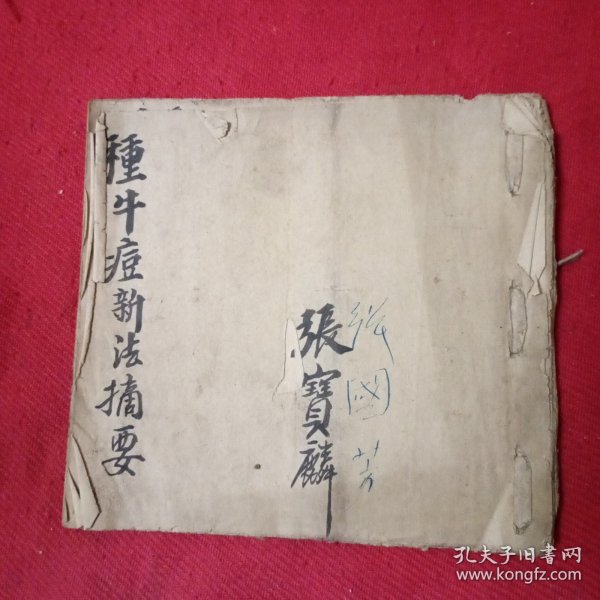 種牛痘新法摘要
張寶麟
國芳
孔夫子旧书网
www.kongfz.com